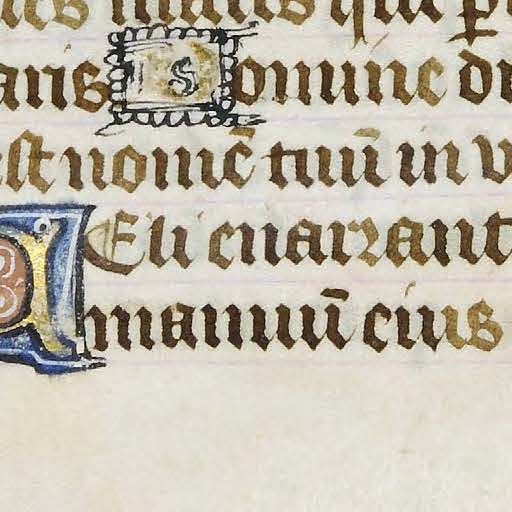 maris qui p
aris Domine du
est nomē tuū in v
Eli enarrant
manuū eius